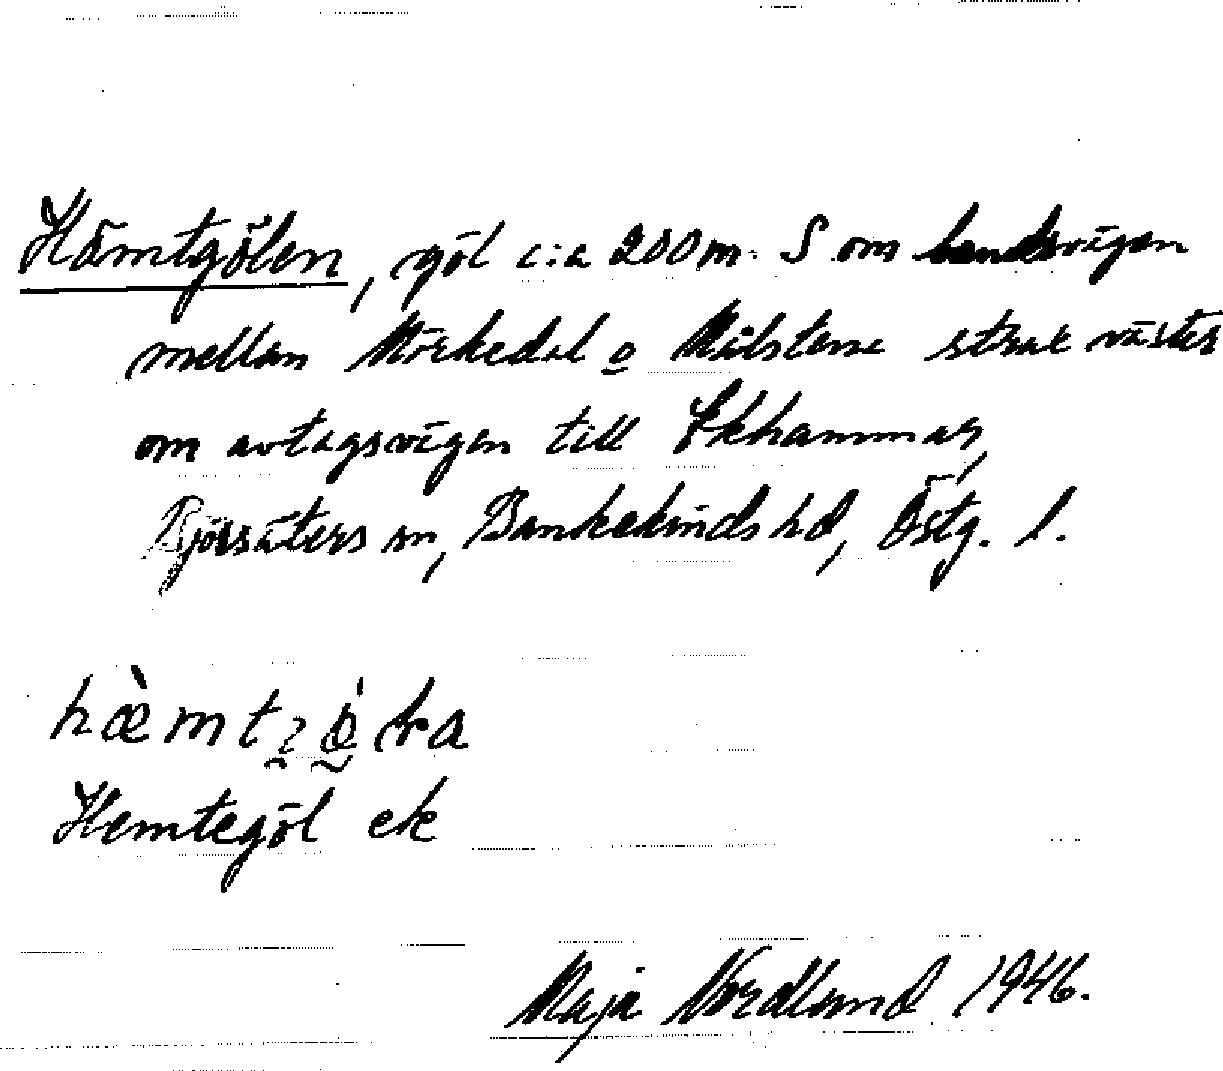 Hämtgölen, göl c:a 200 m. S om landsvägen
mellan Mörkedal o Milstena strax väster
om avtagsvägen till Ekhammar,
Björsäters sn, Bankekinds hd, Östg. l.
Hemtegöl ek
Maja Nordlund 1946.